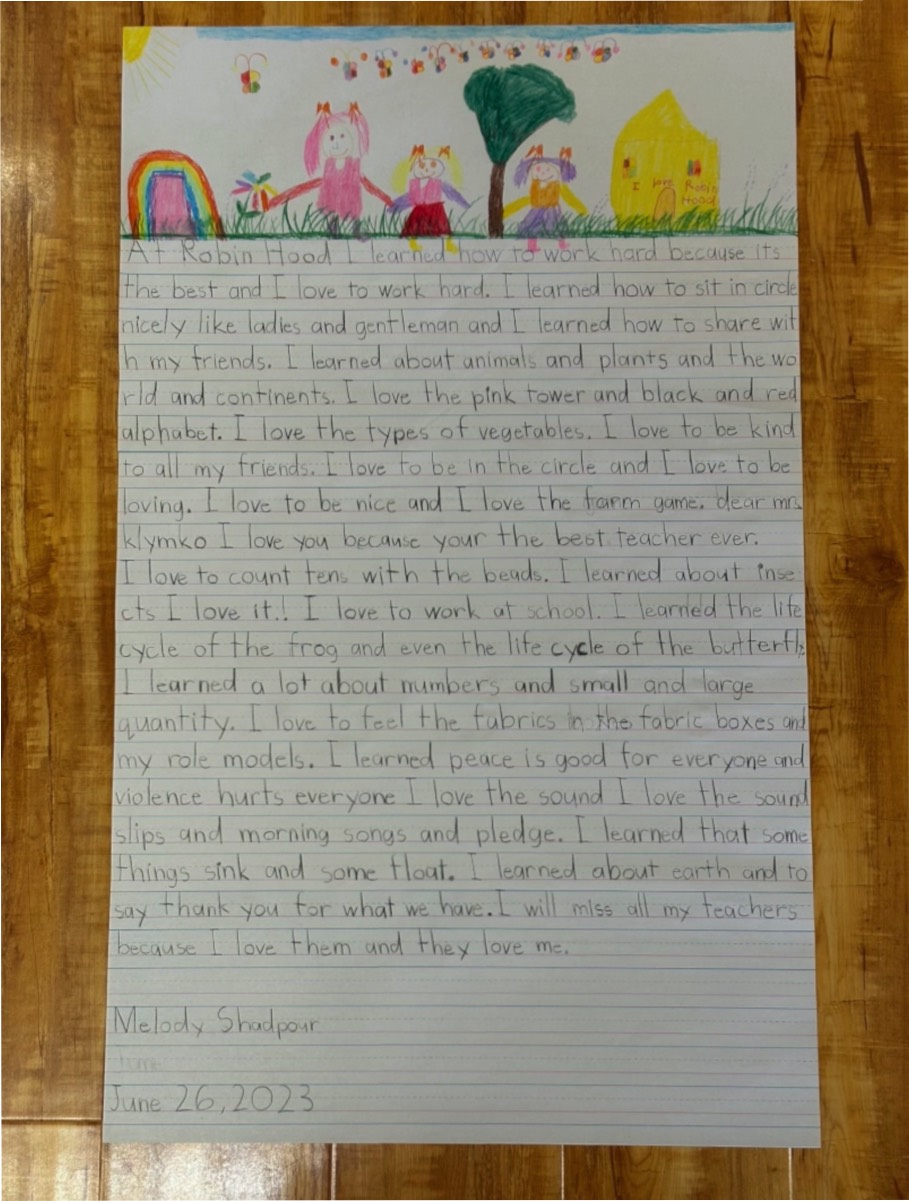 I love Robin
Hood
At Robin Hood I learned how to work hard because its
the best and I love to work hard. I learned how to sit in circle
nicely like ladies and gentleman and I learned how to share wit
h my friends. I learned about animals and plants and the wo
rld and continents. I love the pink tower and black and red
alphabet. I love the types of vegetables. I love to be kind
to all my friends. I love to be in the circle and I love to be
loving. I love to be nice and I love the farm game. dear mrs.
klymko I love you because your the best teacher ever.
I love to count tens with the beads. I learned about inse
cts I love it.! I love to work at school. I learned the life
cycle of the frog and even the life cycle of the butterfly.
I learned a lot about numbers and small and large
quantity. I love to feel the fabrics in the fabric boxes and
my role models. I learned peace is good for everyone and
violence hurts everyone I love the sound I love the sound
slips and morning songs and pledge. I learned that some
things sink and some float. I learned about earth and to
say thank you for what we have. I will miss all my teachers
because I love them and they love me.
Melody Shadpour
June 26, 2023